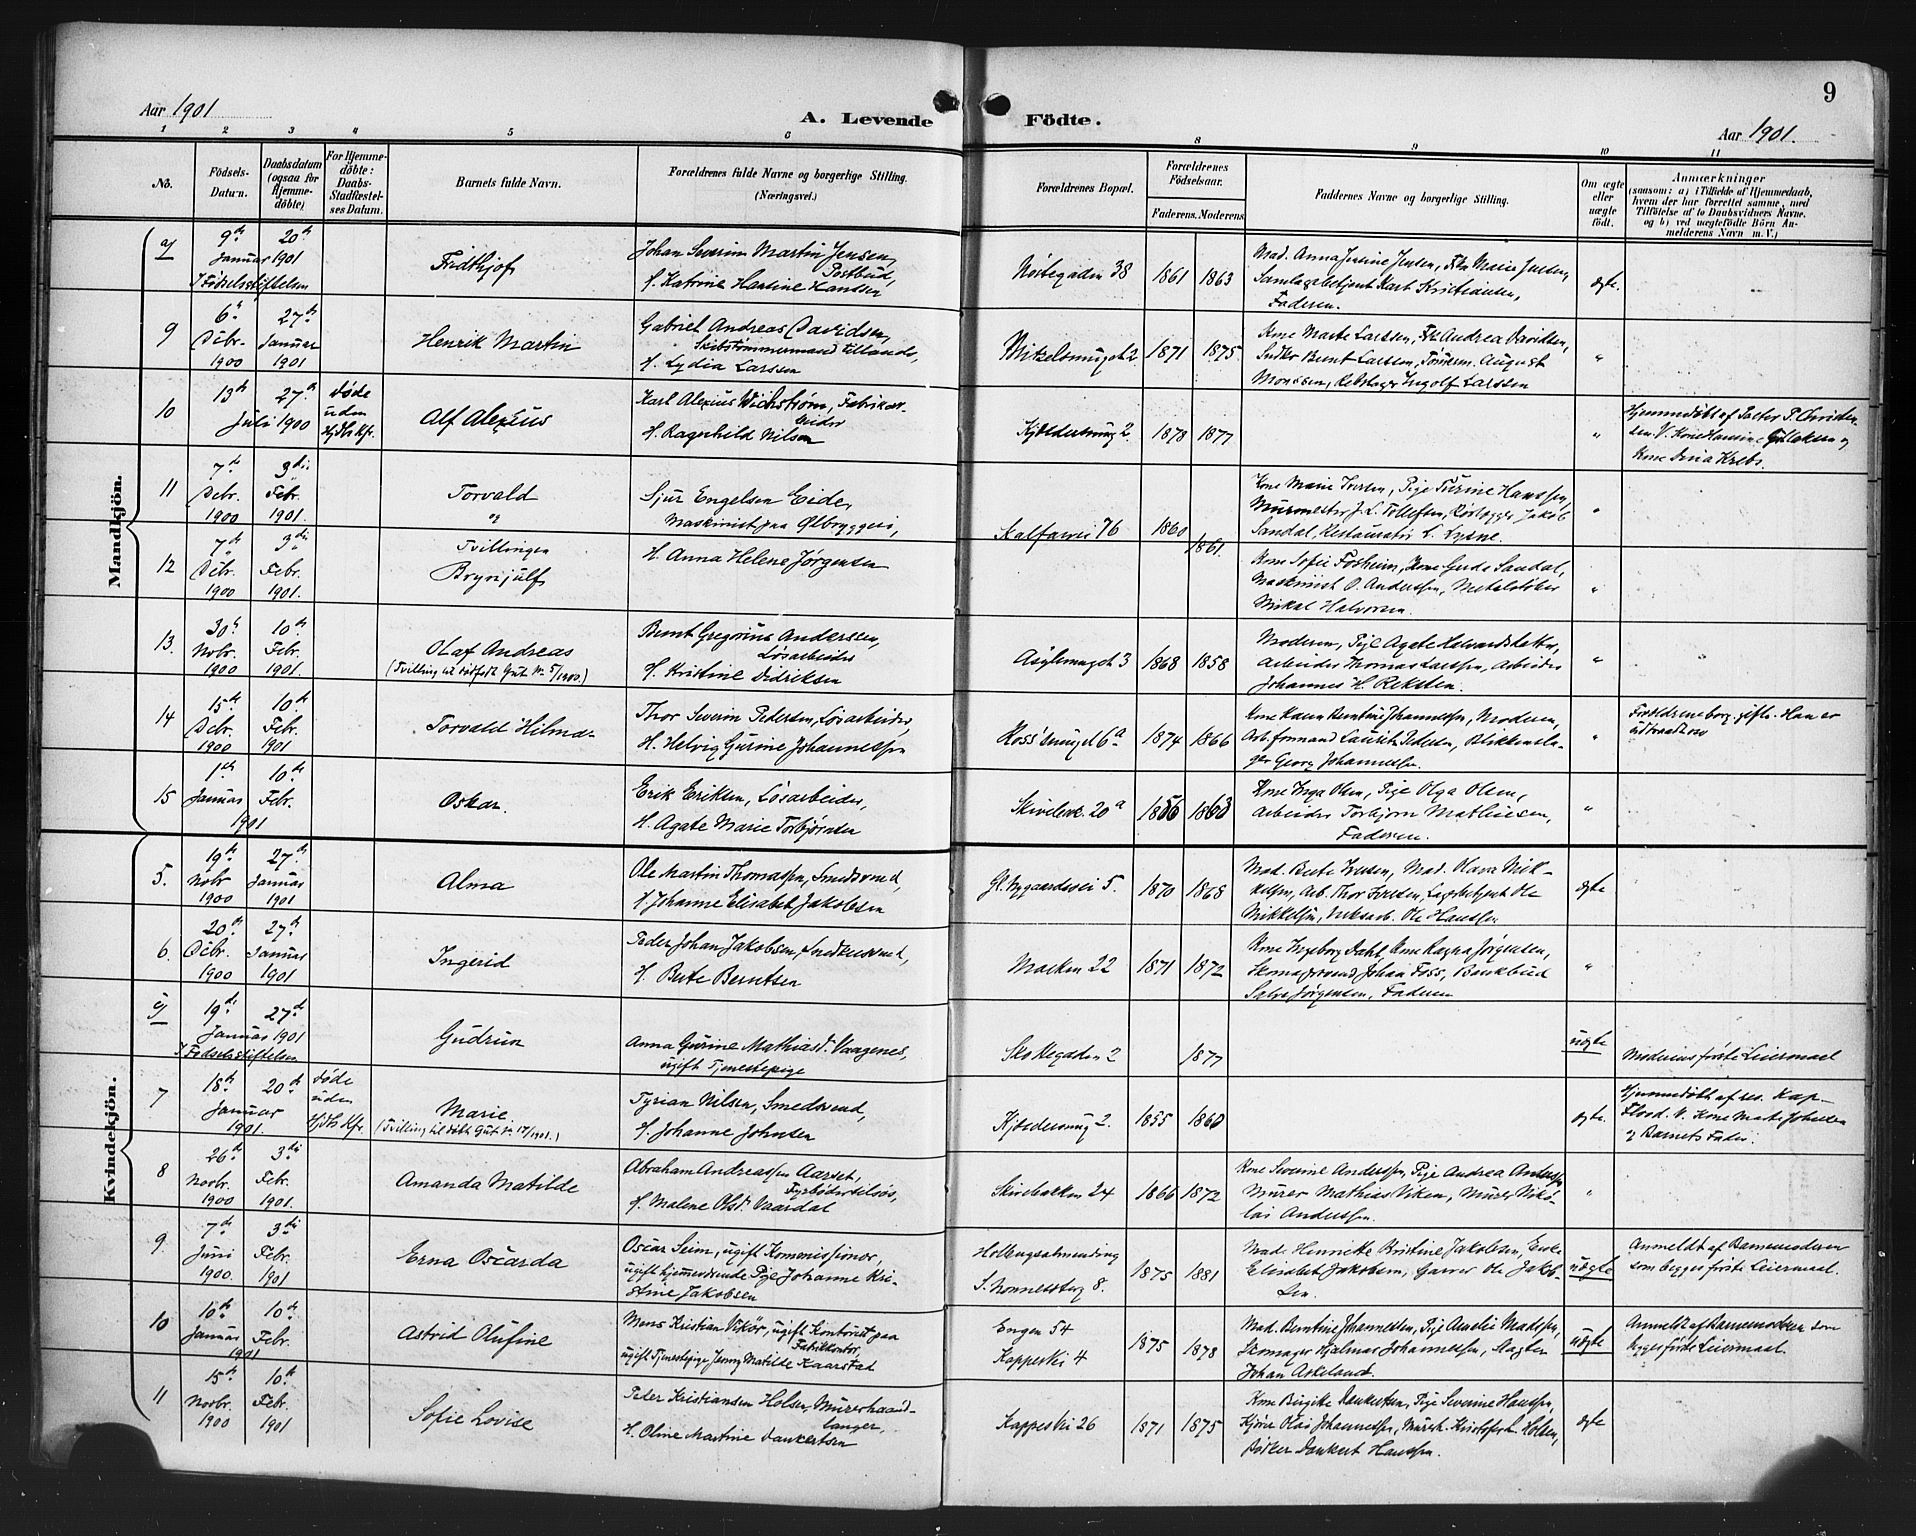 Aar 1901
A. Levende Födte.
9
Aar 1901.
1 2 3 4 5 6 8 9 10 11
No.
Födsels-Datum.
Daabsdatum (ogsaa for Hjemmedöbte)
For Hjemmedöbte: Daabs-Stadfæstelses Datum.
Barnets fulde Navn.
Forældrenes fulde Navne og borgerlige Stilling. (Næringsvei.)
Forældrenes Bopæl.
Forældrenes Födselsaar.
Faderens. Moderens.
Faddernes Navne og borgerlige Stilling.
Om ægte eller uægte födt.
Anmærkninger
(saasom: a) i Tilfælde af Hjemmedaab, hvem der har forrettet samme, med Tilföielse af to Daabsvidners Navne. og b) ved uægtefödte Börn Anmelderens Navn m. V.)
Mandkjön.
9de Januar 1901 20de
I Fødselsstiftelsen
Fridthjof
Johan Severin Martin Jensen, Postbud,
H. Katrine Hartine Hanssen
Nøstegaden 38
1861 1863
Mad. Anna Justine Jensen, Frk. Marie Jensen,
Samlagsbetjent Karl Kristiansen,
Faderen.
ægte.
9
6te Dcbr. 1900
27de Januar 1901
Henrik Martin
Gabriel Andreas Davidsen,
Skibstømmermand tillands,
H. Lydia Larssen
Mitzelsmuget 2
1871 1875
Kone Marte Larssen, Frk. Andrea Davidsen,
Snedker Bernt Larssen, Tømrem. August
Monssen, Rebslager Ingolf Larssen
"
10
13de Juli 1900 27de
Døde uden Hjds Kfr.
Alf Alexius
Karl Alexius Wickstrøm, Fabrikarbeider
H. Ragnhild Nilsen
Kjøldersmug 2
1878 1877
"
Hjemmedøbt af Pastor P. Christensen.
Kone Dina Krebs.
11
7de Dcbr. 1900
3die Febr. 1901.
Torvald
og
Sjur Engelsen Eide,
Maskinist paa Ølbryggeri,
Kalfarvei 76
1860 1861.
Kone Marie Iversen, Pige Turine Hanssen,
Murmester J. L. Tollefsen, Rørlægger Jakob
Sandal, Restauratør L. Lysne.
"
12
7de Dcbr. 1900
3die Febr. 1901.
Tvillingen
Brynjulf
H. Anna Helene Jørgensen
Kone Sofie Fosheim, Kone Gerda Sandal,
Maskinist O. Anderssen, Metalstøber
Mikal Halvorsen.
"
13.
30te Novbr. 1900
10de Febr. 1901.
Olaf Andreas
(Tvilling til dødfødt Gut Nr. 5/1900.)
Bernt Gregorius Anderssen,
Løsarbeider
H. Kristine Didriksen
Asylsmuget 3
1868 1858
Moderen, Pige Agate Halvardsdatter,
Arbeider Thomas Larssen, Arbeider
Johannes H. Reksten.
"
14
15de Dcbr. 1900
10de Febr. 1901
Torvald Hilmar
Thor Severin Pedersen, Løsarbeider,
H. Helvig Gurine Johannessen
Koss'smuget 6a
1874 1866
Kone Karen Berntine Johannessen, Moderen,
Arb. formand Laurits Pedersen, Blikkenslager
Georg Johannessen.
"
Forældrene borg. gifte. Han er
udtraadt
15
1ste Januar 1901
10de Febr.
Oskar.
Erik Eriksen, Løsarbeider,
H. Agate Marie Torbjørnsen
Skivebk. 20a
1856 1863
Kone Inga Olsen, Pige Olga Olsen,
Arbeider Torbjørn Mathiesen,
Faderen.
"
Kvindekjön.
5.
19de Novbr 1900
27de Januar 1901
Alma
Ole Martin Thomassen, Smedsvend,
H. Johanne Elisabet Jakobsen
Gl. Nygaardsvei 5.
1870 1868
Mad. Berte Iversen, Mad. Olava Mikkelsen,
Arb. Thor Iversen, Ole
Mikkelsen, Verksarb. Ole Hanssen
ægte
6.
20de Dcbr. 1900
27de Januar 1901
Ingerid
Peder Johan Jakobsen, Snedkersvend,
H. Berte Berntsen
Marken 22
1871 1872
Kone Ingeborg Dahl, Kone Ragna Jørgensen,
Skomagersvend Johan Foss, Bankbud
Salve Jørgensen, Faderen
"
19de Januar 1901 27de
I Fødselsstiftelsen
Gudrun
Anna Gurine Mathiasd. Vaagenes,
ugift Tjenestepige
Skottegaden 2
1877
uægte
Moderens første Leiermaal
7
18de Januar 1901. 20de
Døde uden Hjds Kfr.
Marie
(Tvilling til døbt Gut Nr. 17/1901.)
Tyrian Nilsen, Smedsvend,
H. Johanne Johnsen
Kjøldersmug 2.
1855 1860
ægte.
Hjemmedøbt af res. Kap.
Flood. V. Kone Mart. Johnsen
og Barnets Fader.
8
26de Novbr. 1900
3die Febr. 1901.
Amanda Matilde
Abraham Andreassen Aarset,
Fyrbøder tilsøs,
H. Malene Olsd. Vaardal
Skivebakken 24
1866 1872
Kone Severine Anderssen, Pige Andrea Anderssen
Murer Mathias Viken, Murer Nikolai
Anderssen.
"
9.
7de Juni 1900.
3die Febr. 1901
Erna Oscarda
Oscar Seim, ugift Kommissionær,
ugift hjemmeværende Pige Johanne Kristine
Jakobsen
Hollengsalmending
S. Nonnesbtg 8.
1875 1881
Mad. Henrikke Kristine Jakobsen, Enke
Elisabet Jakobsen, Garver Ole Jakobsen.
uægte
Anmeldt af Barnemoderen
som begges første Leiermaal.
10
10de Januar 1901
10de Febr.
Astrid Olufine
Mons Kristian Vikør, ugift Kontorist paa
Fabrikkontor,
ugift Tjenestepige Jenny Matilde Kaarstad
Engen 54
Kappesvei 4
1875 1878
Mad. Berntine Johannessen, Pige Amalie Madssen,
Skomager Hjalmar Johannessen, Slagter
Johan Askeland.
uægte
Anmeldt af Barnemoderen som
begges første Leiermaal.
11
15de Novbr. 1900
10de Febr. 1901
Sofie Lovise
Peder Kristiansen Holsen, Murerhaandlanger,
H. Oline Martine Dankertsen
Kappesvei 26
1871 1875
Kone Birgitte Dankertsen, Pige Severine Hanssen,
Kjører Olai Johannessen, Murerh. Kristofer Holsen,
Bødker Dankert Hanssen.
ægte